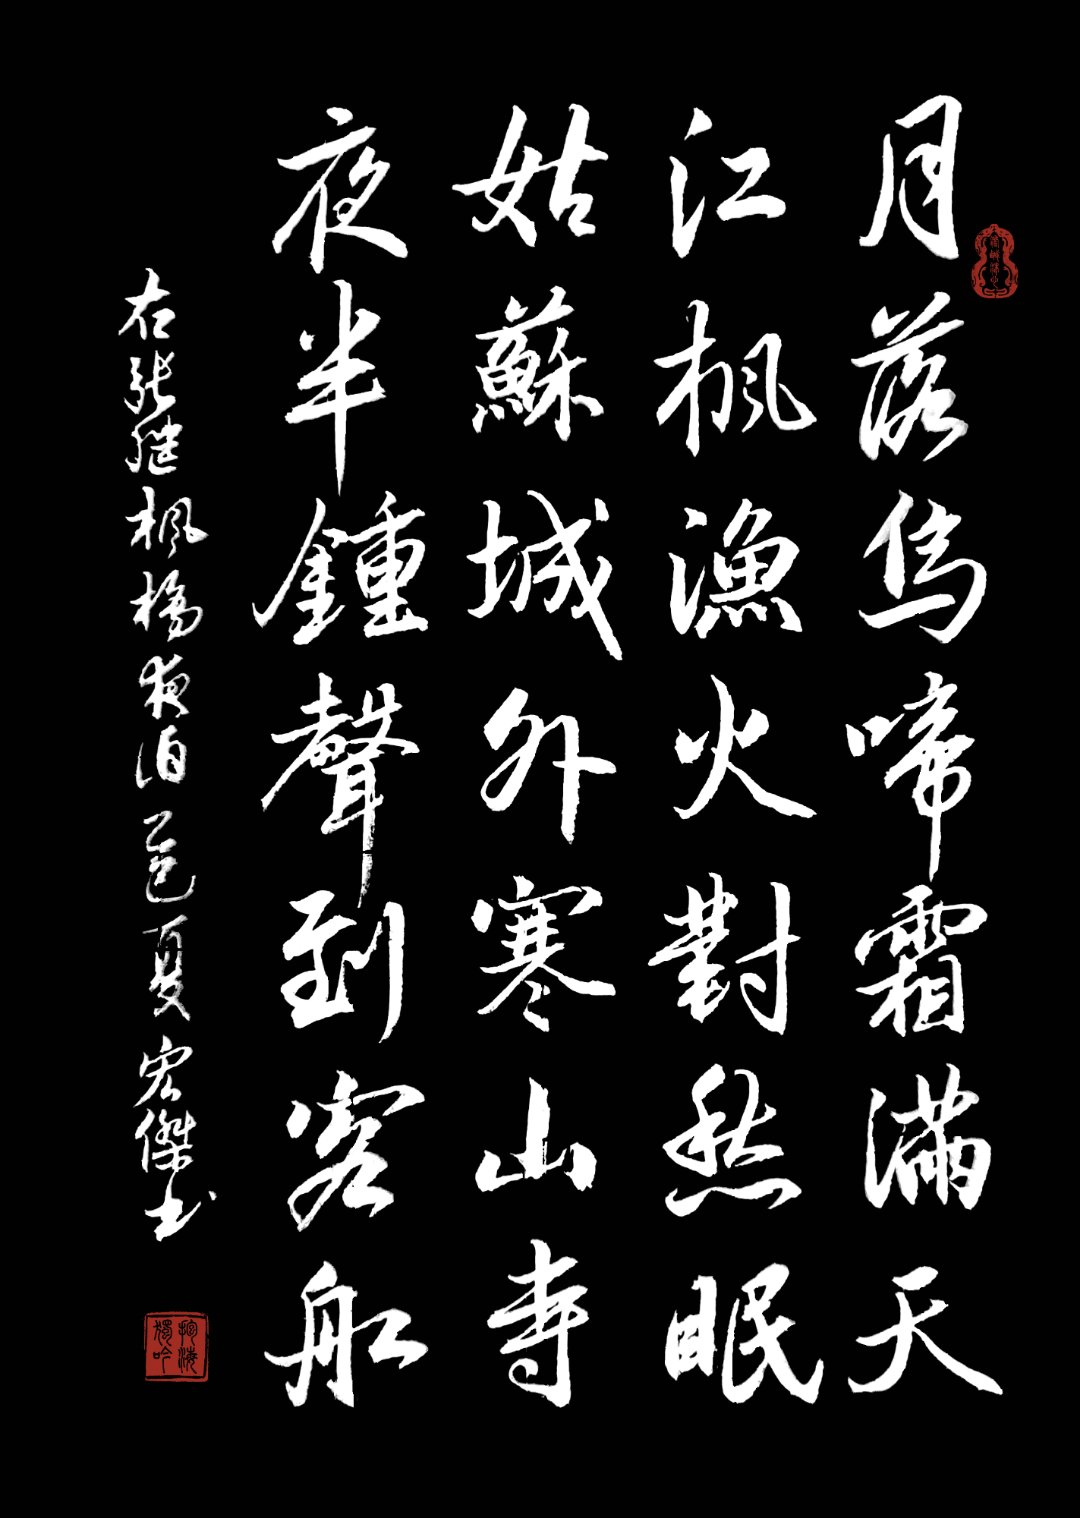 月落烏啼霜滿天
江楓漁火對愁眠
姑蘇城外寒山寺
夜半鍾聲到客船
右張繼楓橋夜泊乙巳夏宏傑书